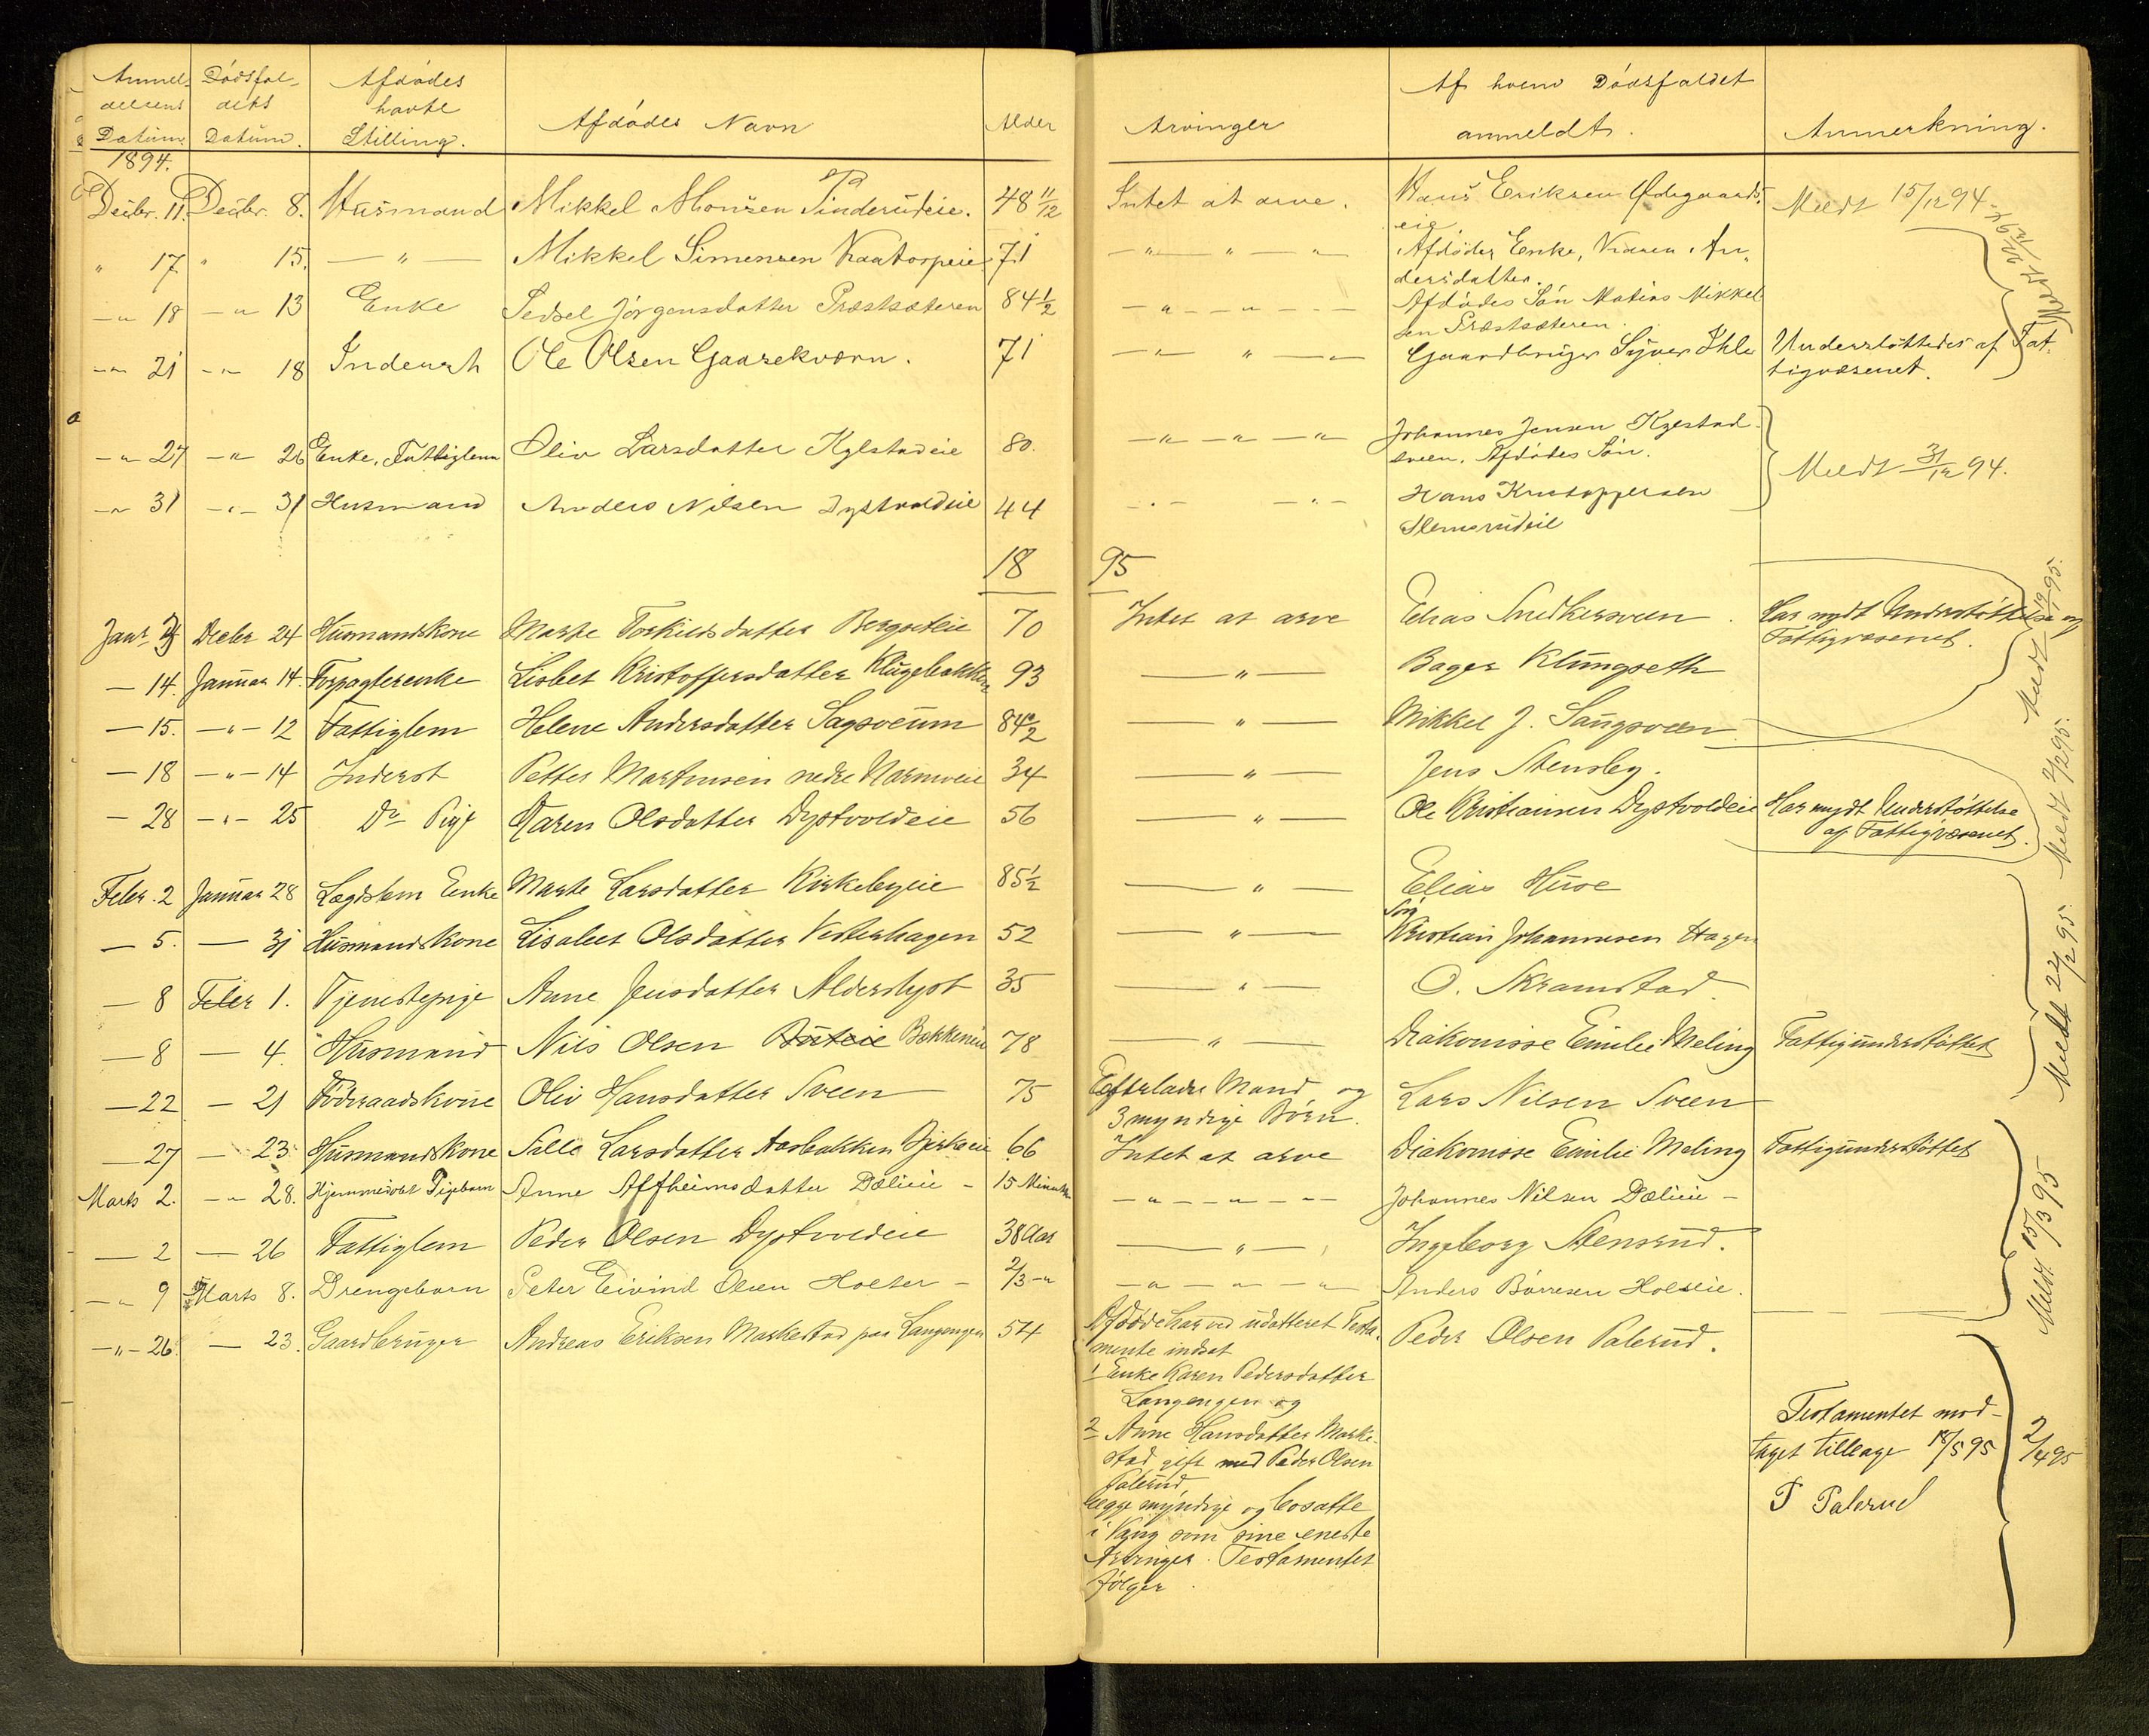 Anmel- Dødsfal- Afdødes
delsens dets havte Afdødes Navn Alder Arvinger Af hvem Dødsfaldet anmeldt. Anmerkning.
Datum Datum. Stilling.
1894.
Decbr. 11. Decbr. 8. Husmand Mikkel Monsen Sinderudeie. 48 11/12 Intet at arve. Hans Eriksen Ødegaards- Meldt 15/12 94
eie.
" 17 " 15. — " — Mikkel Simensen Kaatorpeie 71 — " — " — " Afdødes Enke, Karen An-
dersdatter.
—"— 18 —"— 13 Enke Sedsel Jørgensdatter Præstsæteren 84 1/2 — " — " — Afdødes Søn Matias Mikkel-
sen Præstsæteren.
—"— 21 —"— 18 Inderst Ole Olsen Gaasekværn. 71 — " — " — " Gaardbruger Syver Ihle Understøttedes af Fat-
tigvæsenet.
—"— 27 —"— 26 Enke, Fattiglem Oliv Larsdatter Kylstadeie 80. — " — " — " Johannes Jensen Kylstad-
sveen, Afdødes Søn. Meldt 31/12 94.
—"— 31 —"— 31 Husmand Anders Nilsen Dystvoldeie 44 — " — — " — Hans Kristoffersen
Stemsrudeie
18 95
Janr 3 Decbr 24 Husmandskone Marte Torkildsdatter Bergseteie 70 Intet at arve Elias Snedkersveen Har nydt Understøttelse af
Fattigvæsenet.
— 14. Januar 14. Forpagterenke Lisbet Kristoffersdatter Klugebakken 93 — " — Bager Klungseth
— 15. —"— 12 Fattiglem Helene Andersdatter Sagsveum 84 1/2 — " — Mikkel J. Saugsveen Meldt
— 18 —"— 14 Inderst Petter Martinsen nedre 34 — " — Jens Stensby.
— 28 —"— 25 Do Pige Karen Olsdatter Dystvoldeie 56 — " — Ole Kristiansen Dystvoldeie Har nydt Understøttelse
af Fattigvæsenet.
Meldt 2/2 95.
Febr. 2 Januar 28 Lægdslem Enke Marte Larsdatter Kirkebyeie 85 1/2 — " — Elias Huse
— 5. — 31 Husmandskone Lisabet Olsdatter Vesterhagen 52 — " — Kristian Johannesen Hagen
— 8 Febr 1. Tjenestepige Anne Jensdatter Alderslyst 35 — " — O. Skramstad.
— 8 — 4. Husmand Nils Olsen Bekkeneie 78 — " — Diakonisse Emilie Meling Fattigunderstøttet
Meldt 22/2 95.
— 22 — 21 Føderaadskone Oliv Hansdatter Sveen 75 Efterlader Mand og Lars Nilsen Sveen
3 myndige Børn.
— 27 — 23 Husmandskone Sille Larsdatter Aasbakken Bjerkeeie 66 Intet at arve Diakonisse Emilie Meling Fattigunderstøttet
Marts 2. —"— 28. Hjemmedøbt Pigebarn Anne Alfheimsdatter Dælieie — 15 Minutter — " — " — — Johannes Nilsen Dælieie —
— 2 — 26 Fattiglem Peder Olsen Dystvoldeie 38 Aar — " — Ingeborg Stensrud.
—"— 9 Marts 8. Drengebarn Peter Eivind Olsen Holter — 2/3 —"— — " — " — " Anders Børresen Holseie.
Meldt 15/3 95
—"— 26. — 23. Gaardbruger Andreas Eriksen Markestad paa Langengen 54 Afdøde har ved udatteret Testa- Peder Olsen Palerud.
mente indsat
1 Enke Karen Pedersdatter
Langengen og
2 Anne Hansdatter Marke-
stad gift med Peder Olsen
Palerud,
begge myndige og bosatte
i Vang som sine eneste
Arvinger. Testamentet
følger.
Testamentet mod-
taget tilbage 18/5 95 2/4 95
P Palerud